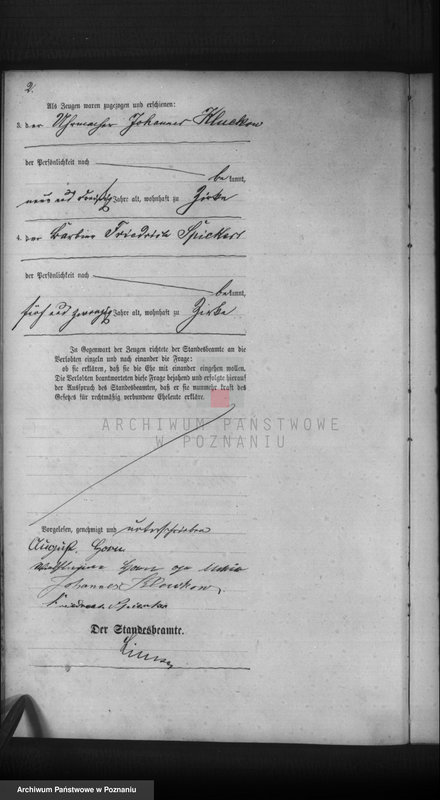 2.
Als Zeugen waren zugezogen und erschienen:
3. der Uhrmacher Johannes Kluckow
der Persönlichkeit nach
bekannt,
neun und dreißig Jahre alt, wohnhaft zu Zirke
4. der Barbier Friedrich Spickert
der Persönlichkeit nach
bekannt,
fünf und zwanzig Jahre alt, wohnhaft zu Zirke
In Gegenwart der Zeugen richtete der Standesbeamte an die
Verlobten einzeln und nach einander die Frage:
ob sie erklären, daß sie die Ehe mit einander eingehen wollen.
Die Verlobten beantworteten diese Frage bejahend und erfolgte hierauf
der Ausspruch des Standesbeamten, daß er sie nunmehr kraft des
Gesetzes für rechtmäßig verbundene Eheleute erkläre.
ARCHIWUM PAŃSTWOWE
W POZNANIU
Vorgelesen, genehmigt und unterschrieben
August Horn
Horn
Johannes Kluckow
Der Standesbeamte.
Archiwum Państwowe w Poznaniu